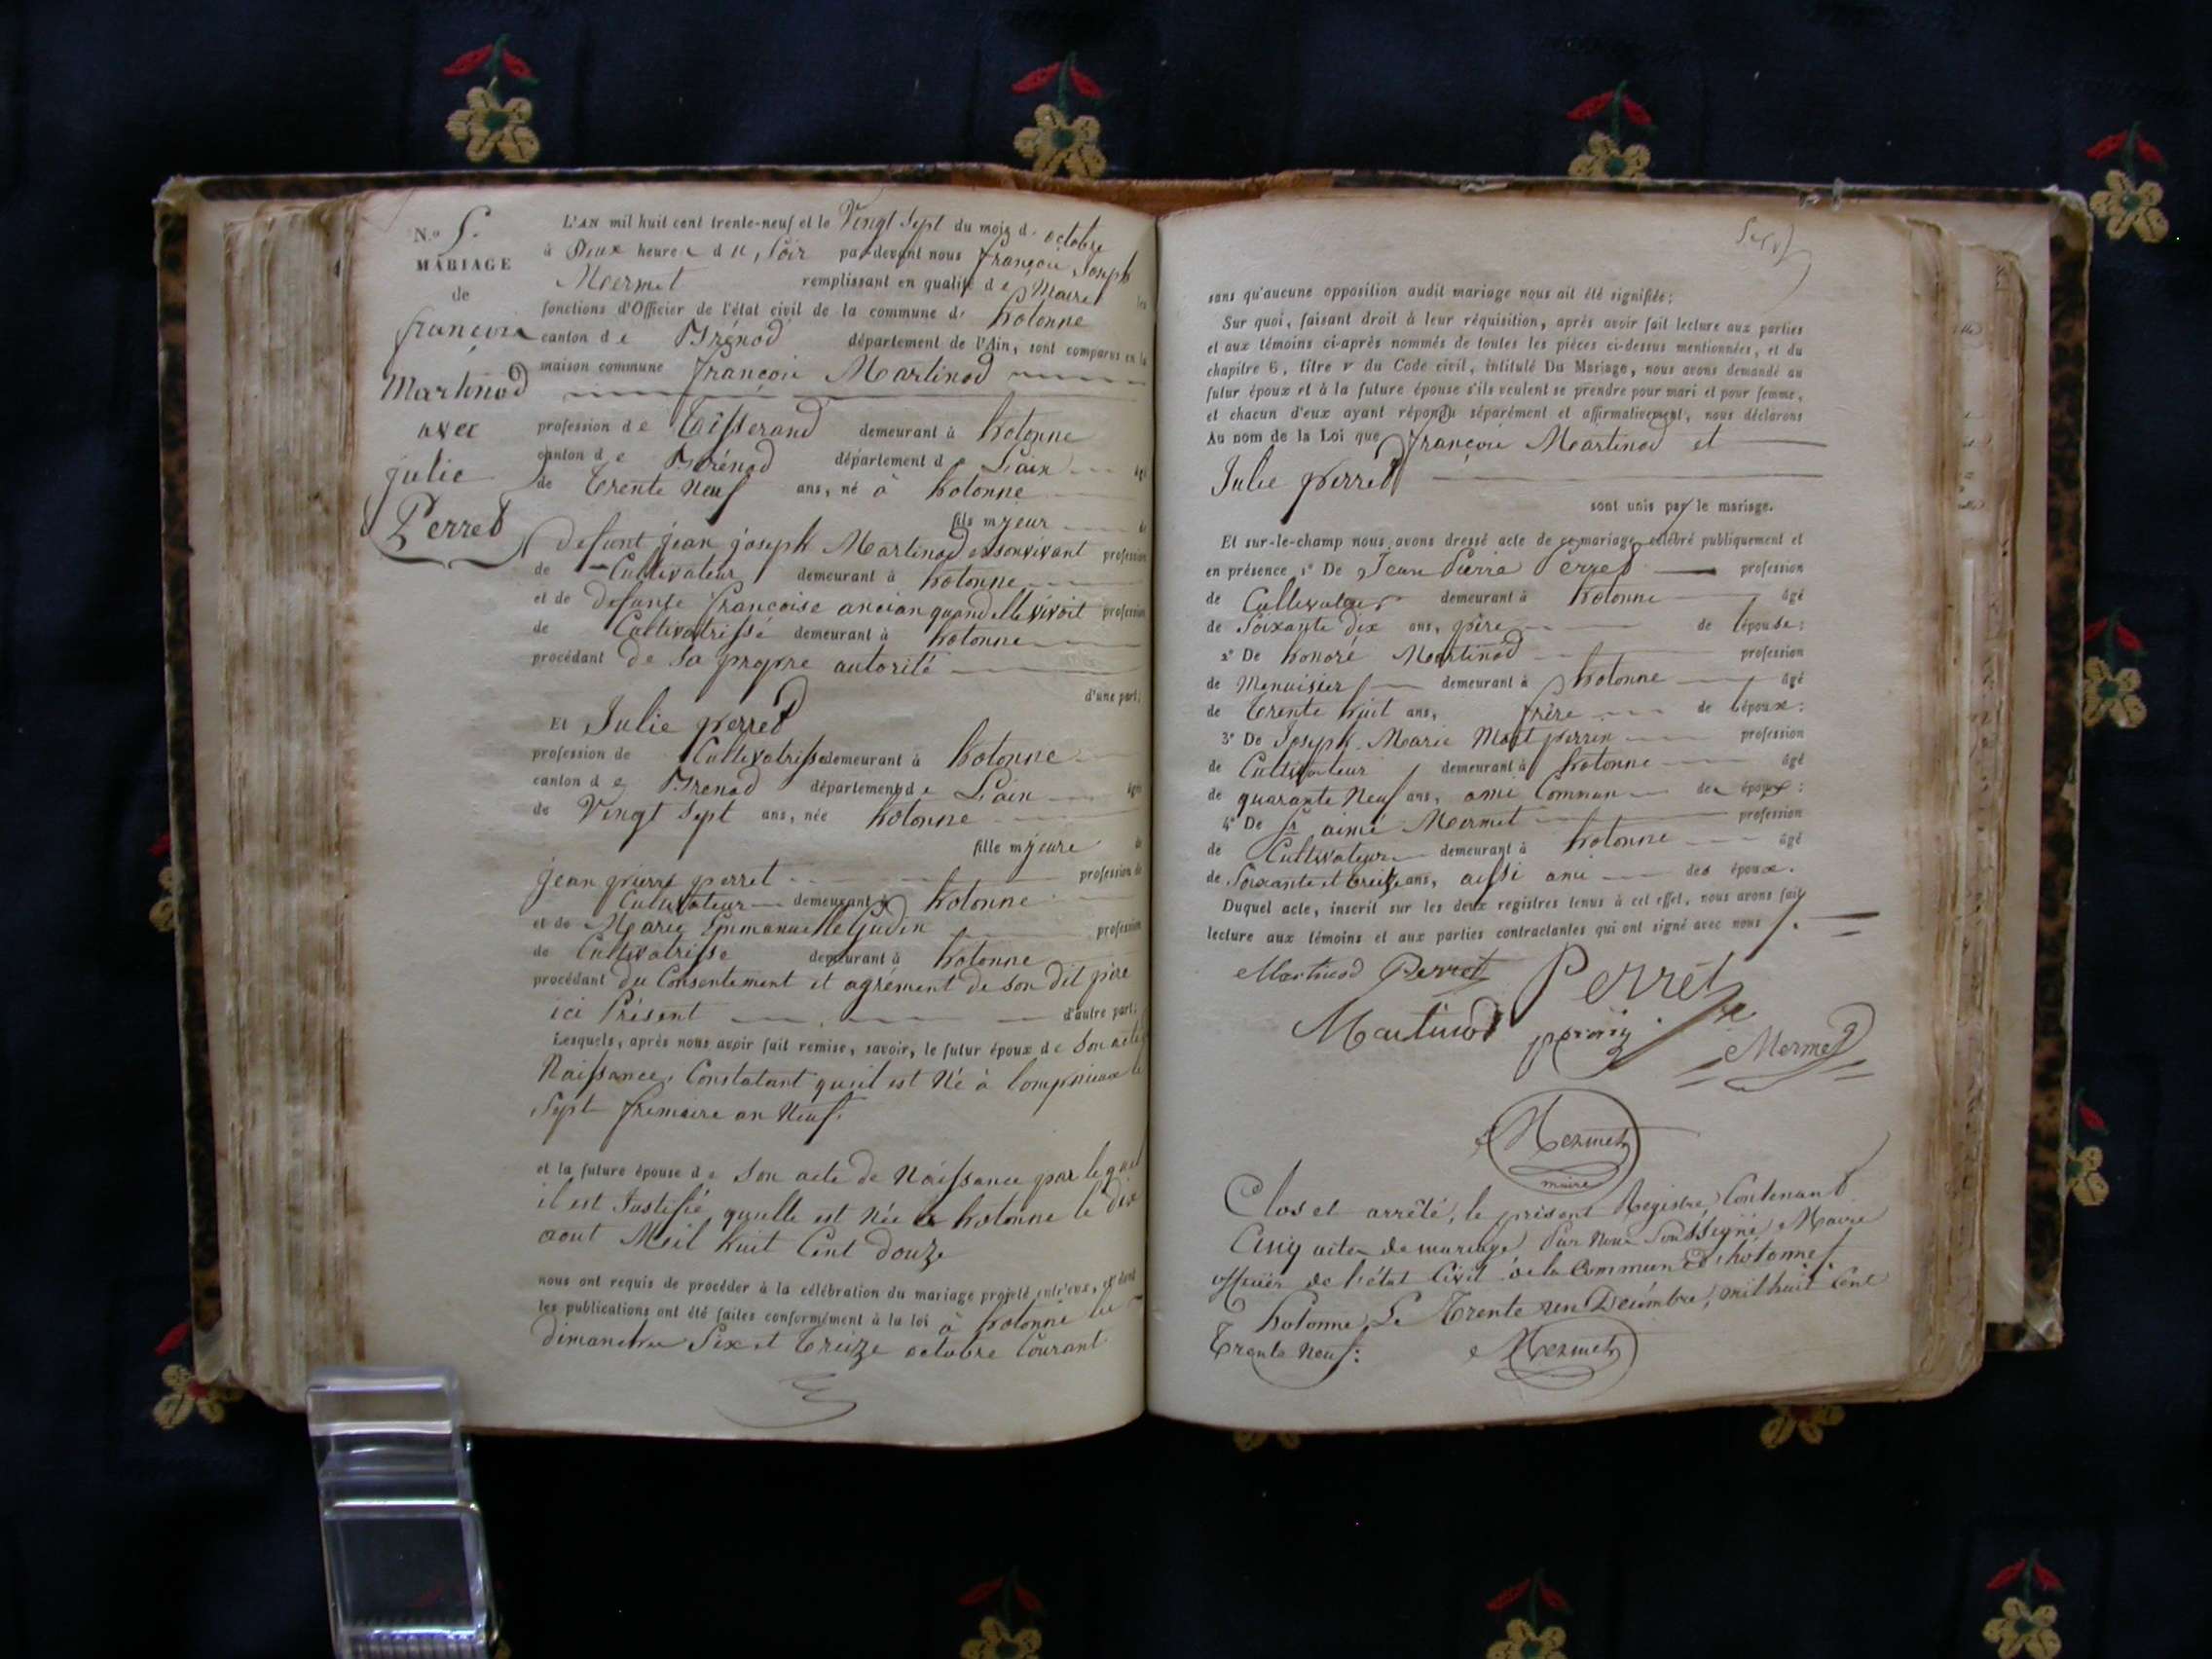 N.º 5.
MARIAGE
de
françois
Martinod
avec
julie
Perret
L'AN mil huit cent trente-neuf et le Vingt Sept du mois d' octobre
à Deux heures du Soir par-devant nous françois Joseph
Mermet remplissant en qualité de Maire les
fonctions d'Officier de l'état civil de la commune d' hotonne
canton de Brénod département de l'Ain, sont comparus en la
maison commune françois Martinod
profession de Tisserand demeurant à hotonne
canton de Brénod département de L'ain âgé
de trente Neuf ans, né à hotonne
fils majeur de
defunt jean joseph Martinod en son vivant profession
de Cultivateur demeurant à hotonne
et de defunte françoise ancian quand elle vivoit profession
de Cultivatrisse demeurant à hotonne
procédant de sa propre autorité
d'une part;
Et Julie perret
profession de Cultivatrisse demeurant à hotonne
canton de Brenod département de L'ain âgée
de Vingt Sept ans, née hotonne
fille majeure de
jean pierre perret profession de
Cultivateur demeurant à hotonne
et de Marie Emmanuelle Gudin profession
de Cultivatrisse demeurant à hotonne
procédant du Consentement et agrément de son dit père
ici Présent d'autre part;
Lesquels, après nous avoir fait remise, savoir, le futur époux de Son acte
Naissance, Constatant qu'il est Né à lompnieux le
Sept frimaire an Neuf.
et la future épouse de Son acte de Naissance par lequel
il est Justifié quelle est Née à hotonne le dix
aout Mil huit Cent douze
nous ont requis de procéder à la célébration du mariage projeté entr'eux, et dont
les publications ont été faites conformément à la loi à hotonne les
dimanches Six et treize octobre Courant
sans qu'aucune opposition audit mariage nous ait été signifiée;
Sur quoi, faisant droit à leur réquisition, après avoir fait lecture aux parties
et aux témoins ci-après nommés de toutes les pièces ci-dessus mentionnées, et du
chapitre 6, titre v du Code civil, intitulé Du Mariage, nous avons demandé au
futur époux et à la future épouse s'ils veulent se prendre pour mari et pour femme,
et chacun d'eux ayant répondu séparément et affirmativement, nous déclarons
Au nom de la Loi que françois Martinod et
Julie perret
sont unis par le mariage.
Et sur-le-champ nous avons dressé acte de ce mariage célébré publiquement et
en présence 1º De Jean Pierre Perret profession
de Cultivateur demeurant à hotonne âgé
de Soixante dix ans, père de l'épouse;
2º De honoré Martinod profession
de Menuisier demeurant à hotonne âgé
de trente huit ans, frère de l'époux;
3º De Joseph Marie Mort perrin profession
de Cultivateur demeurant à hotonne âgé
de quarante Neuf ans, ami Commun des époux;
4º De aimé Mermet profession
de Cultivateur demeurant à hotonne âgé
de Soixante et treize ans, aussi ami des époux.
Duquel acte, inscrit sur les deux registres tenus à cet effet, nous avons fait
lecture aux témoins et aux parties contractantes qui ont signé avec nous
Martinod Perret Perret
Martinod perrin Mermet
Mermet
maire
Clos et arrêté, le présent Registre, Contenant
Cinq actes de mariage Par Nous Soussigné Maire
officier de l'état Civil de la Commune d'hotonne
hotonne, Le Trente un Decembre, mil huit Cent
Trente Neuf:
Mermet